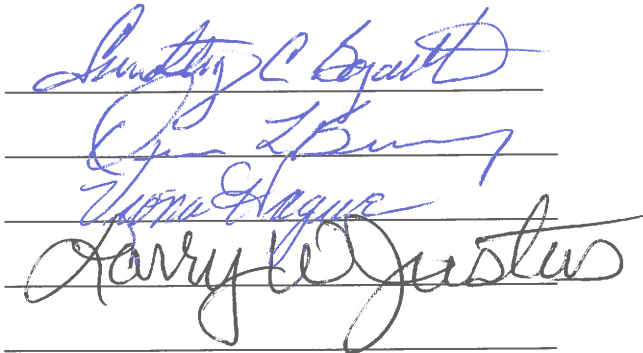 Timothy C Bozarth
L
Viona Hague
Larry W Justus